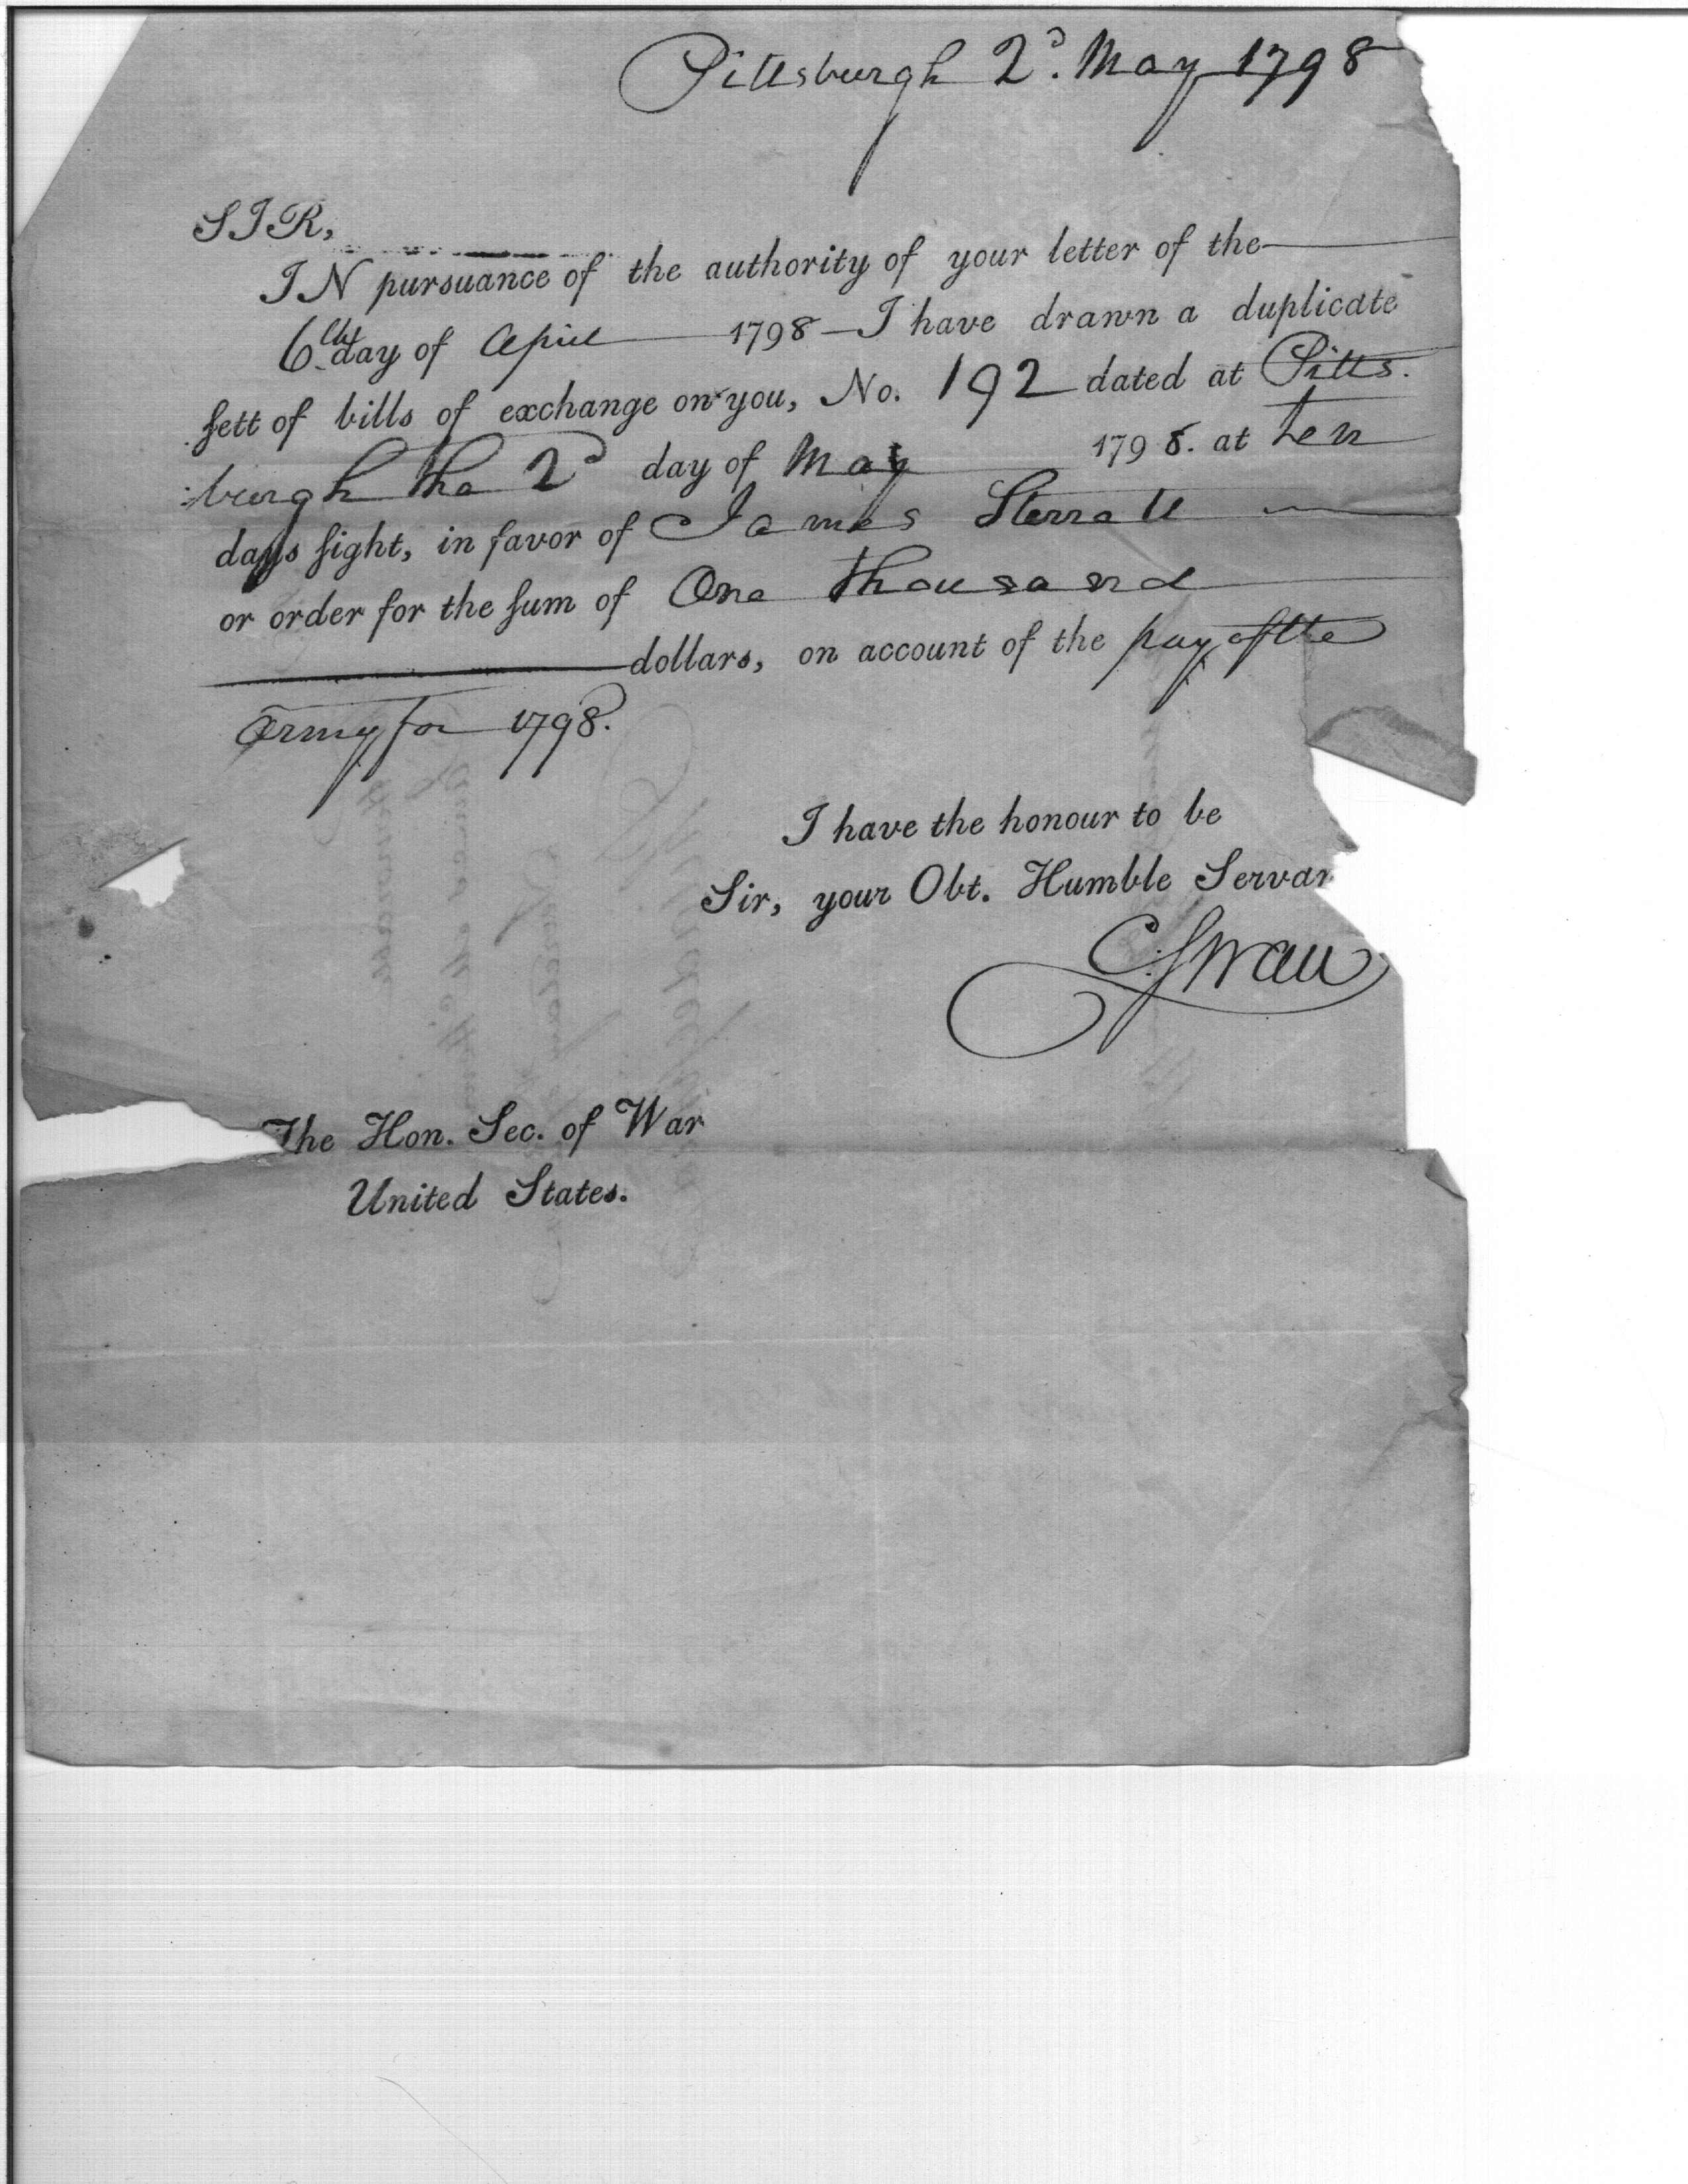 Pittsburgh 2d. May 1798
SIR,
IN pursuance of the authority of your letter of the
6th day of April 1798 — I have drawn a duplicate
sett of bills of exchange on you, No. 192 dated at Pitts.
burgh the 2d day of May 1798. at ten
days sight, in favor of James Sterrett
or order for the sum of One thousand
dollars, on account of the pay of the
Army for 1798.
I have the honour to be
Sir, your Obt. Humble Servan
C Swan
The Hon. Sec. of War
United States.